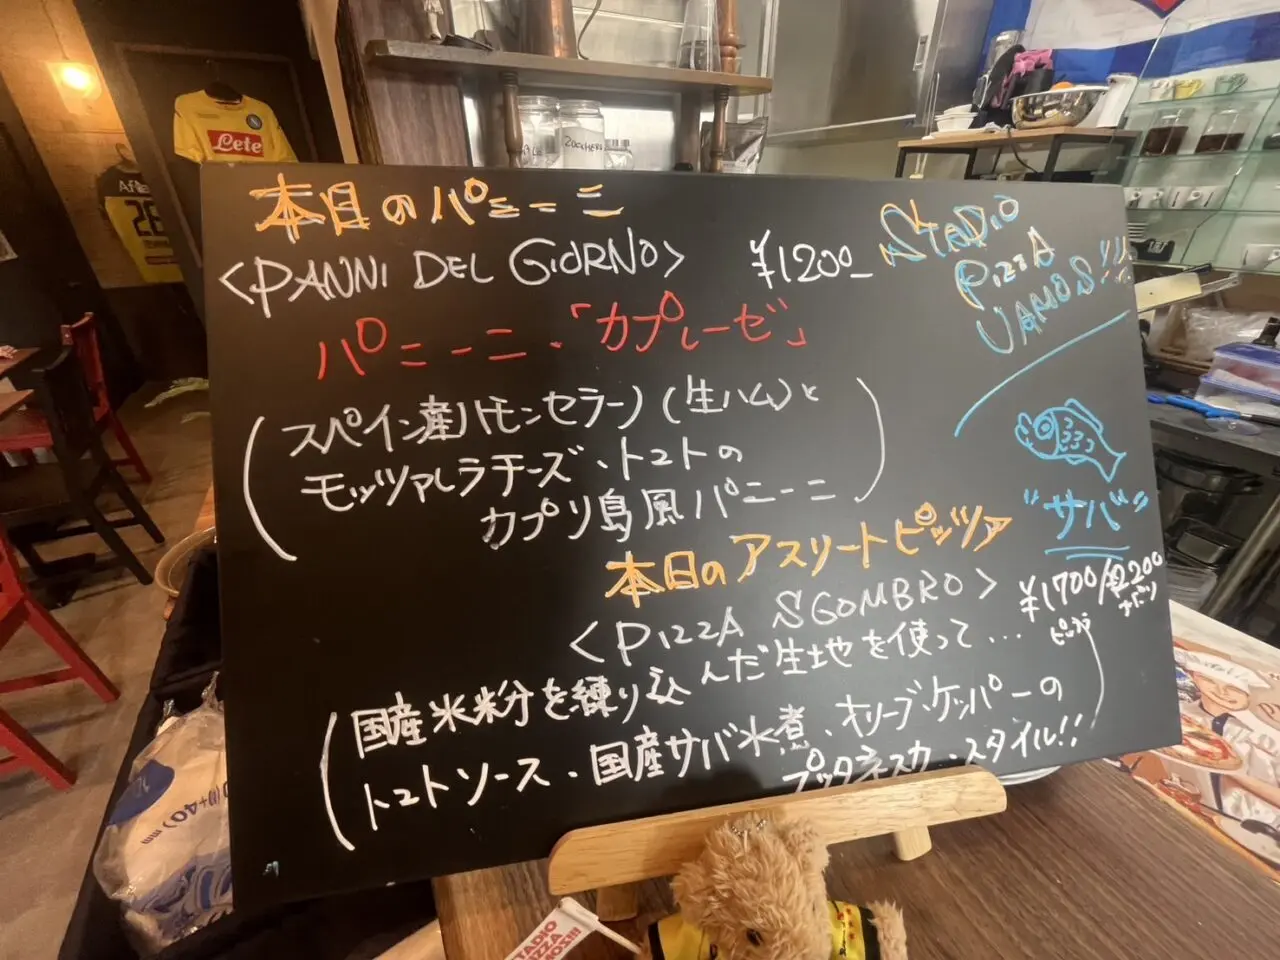 本日のパニーニ
<PANNI DEL GIORNO> ¥1200-
パニーニ・「カプレーゼ」
(スペイン産ハモンセラーノ(生ハム)と
モッツァレラチーズ・トマトの
カプリ島風パニーニ)
STADIO
PIZZA
VAMOS!!!
"サバ"
本日のアスリートピッツァ
<PIZZA SGOMBRO> ¥1700/¥2200
ピッツァ
(国産米粉を練り込んだ生地を使って...
トマトソース・国産サバ水煮・オリーブ・ケッパーの
プッタネスカ・スタイル!!)
Lete
ZUCCHERO